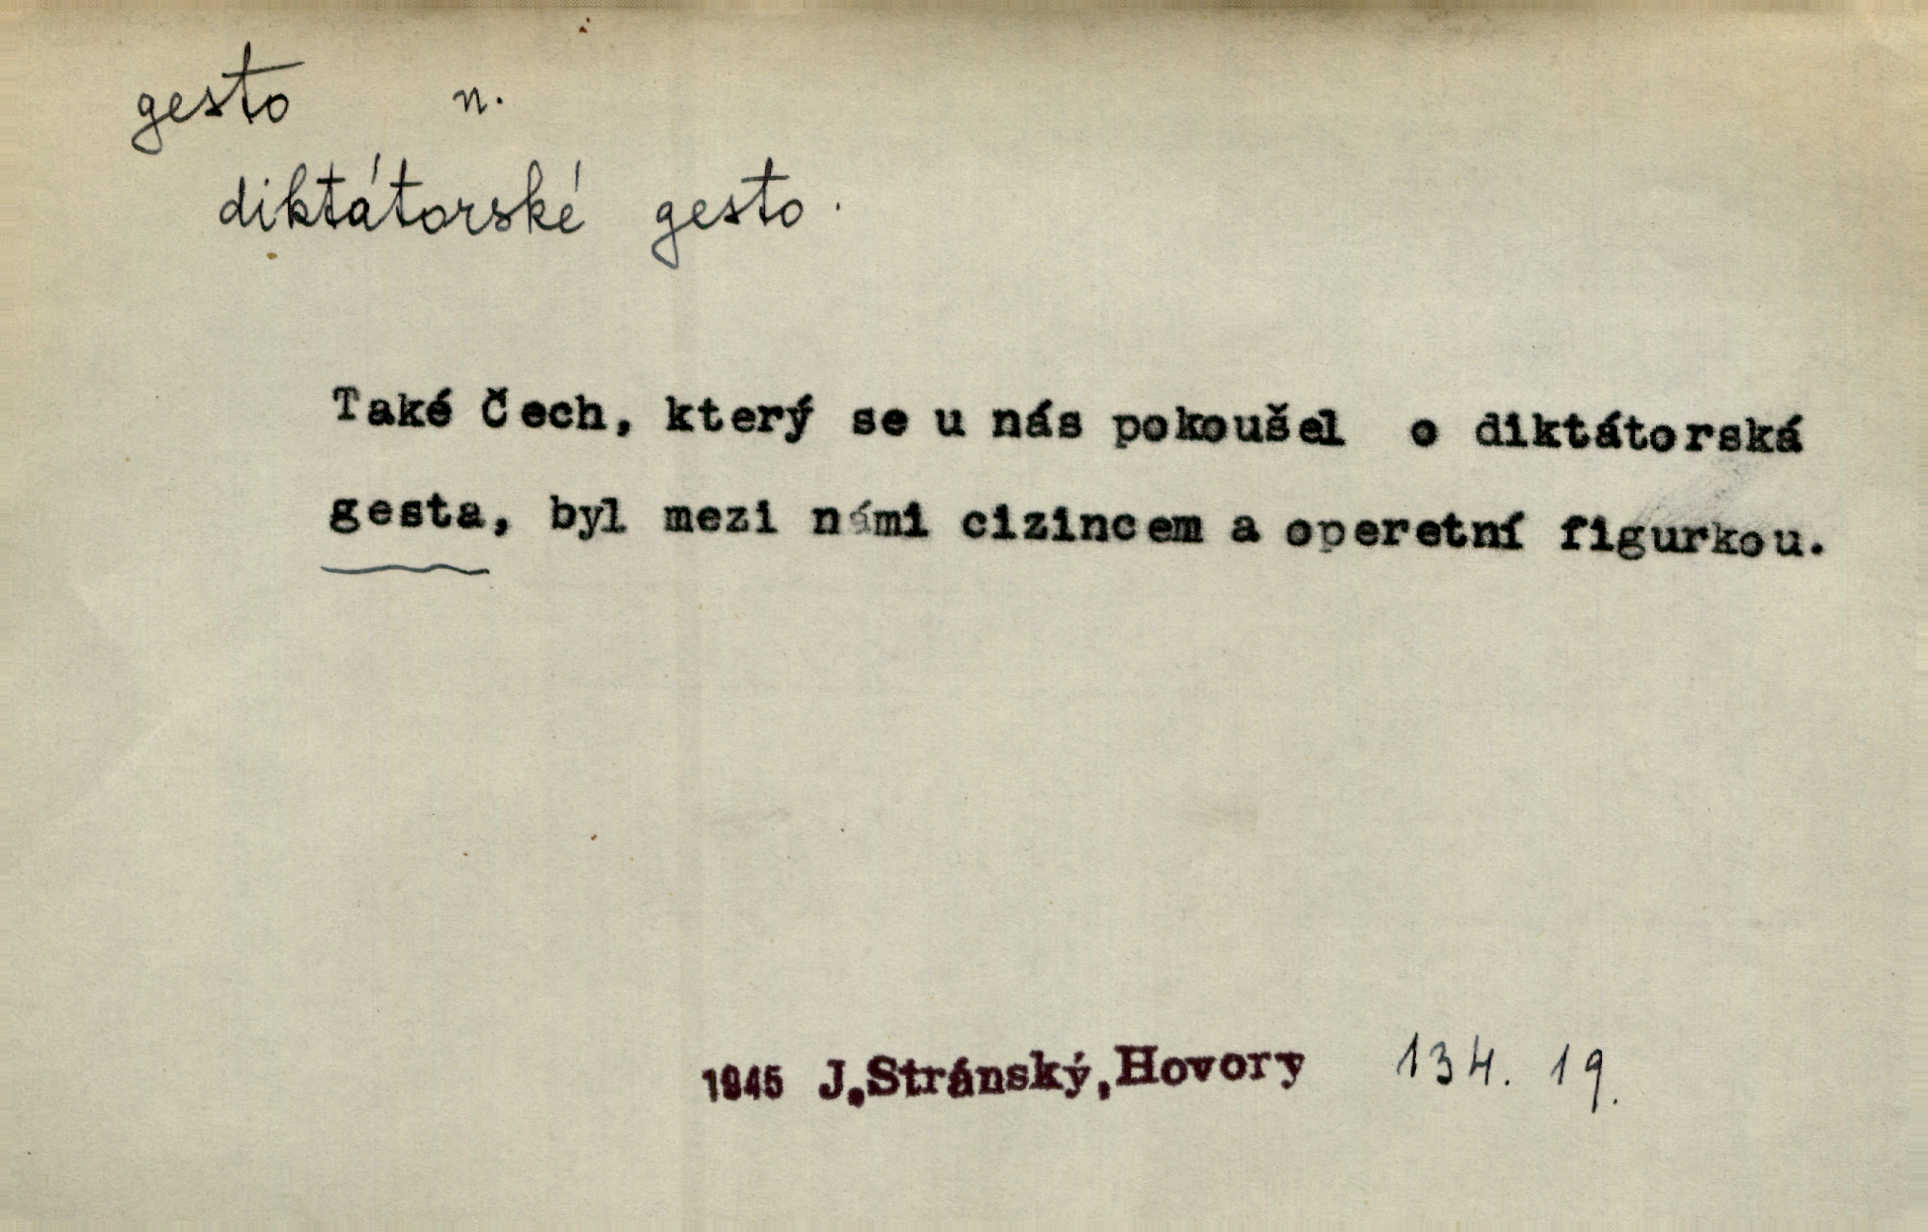 gesto n.
diktátorské gesto.
Také Čech, který se u nás pokoušel o diktátorská
gesta, byl mezi námi cizincem a operetní figurkou.
1945 J.Stránský,Hovory 134. 19.